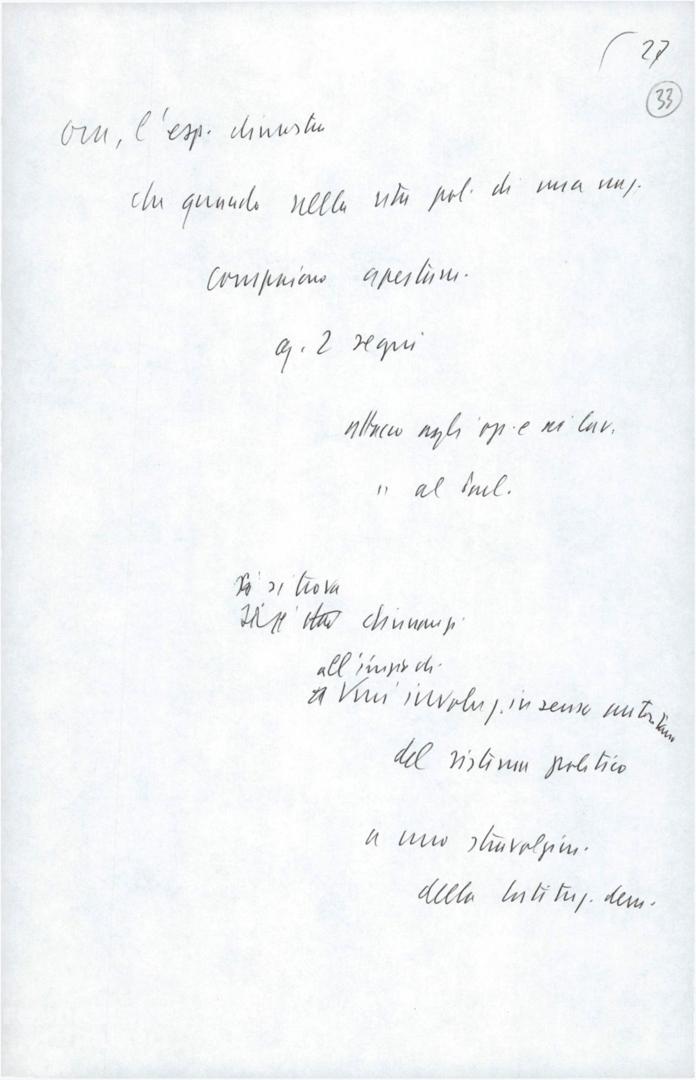 27
33
Ora, l'esp. dimostra
che quando nella vita pol. di una naz.
compaiono apertam.
q. 2 segni
attacco agli op. e ai lav.
" al Parl.
si trova
dinnanzi
all'inizio di
un'involuz. in senso autoritario
del sistema politico
a uno stravolgim.
della Costituz. dem.